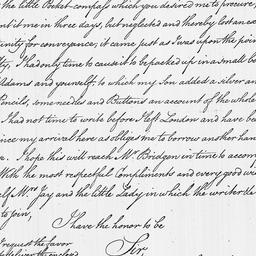 the little Pocket-compass which you desired me to procure,
it me in three days, but neglected and thereby lost an ea
unity for conveyance; it came just as I was upon the poin
ly, I had only time to cause it to be packed up in a small bo
Adams and yourself, to which my Son added a silver an
Pencils, some needles and Buttons an account of the whole
I had not time to write before I left London and have be
ince my arrival here as obliges me to borrow another han
I hope this will reach Mr. Bridgen in time to accom
With the most respectful Compliments and every good wi
elf Mrs. Jay and the little Lady in which the writer de
to join,
I have the honor to be
Sir,
request the favor
deliver the enclos